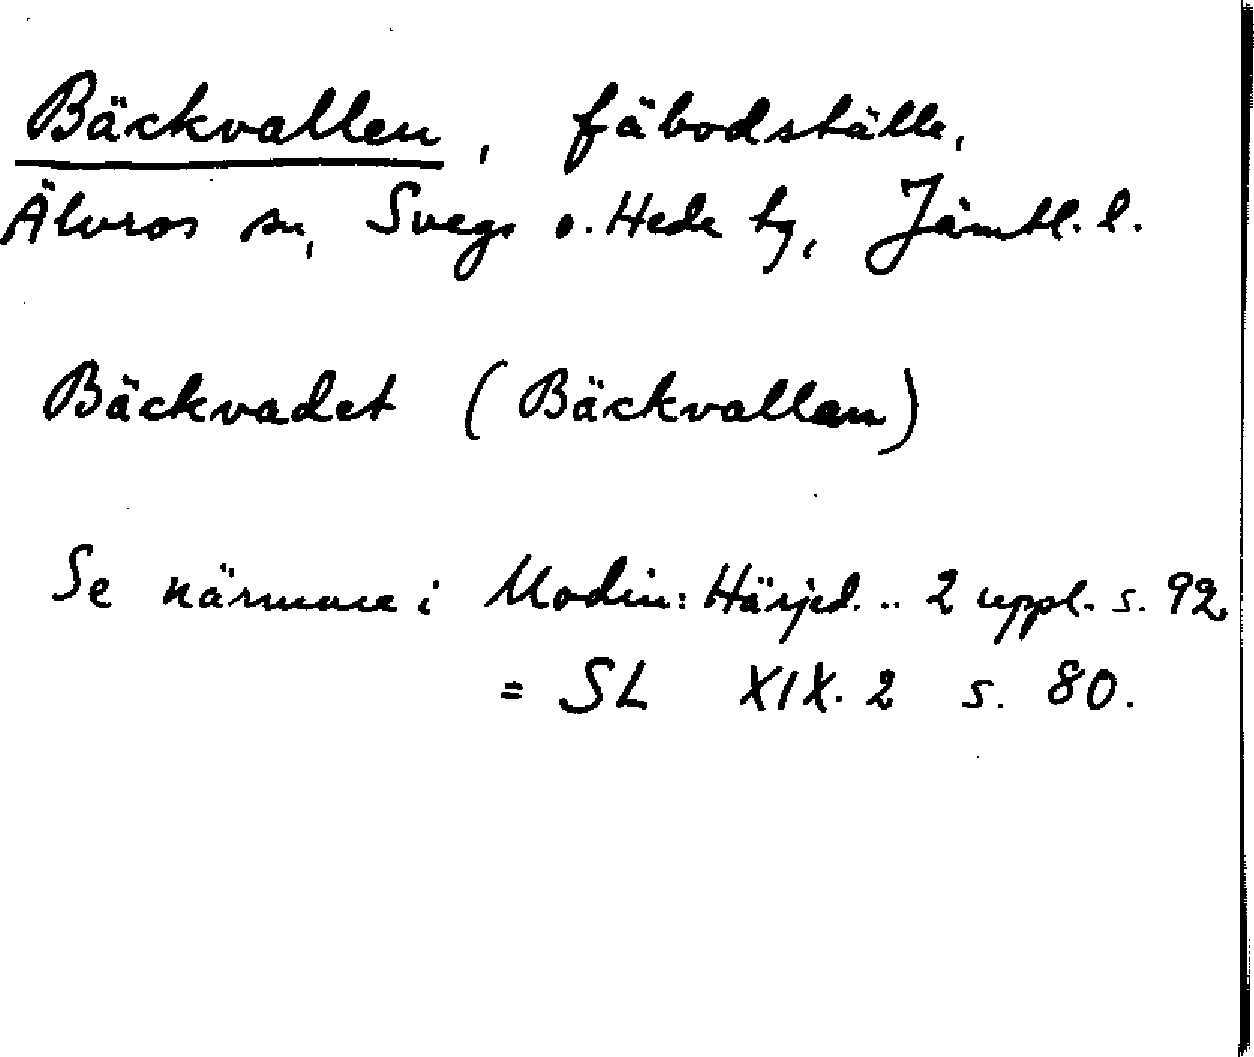 Bäckvallen, fäbodställe,
Älvros sn, Svegs o. Hede tg, Jämtl. l.
Bäckvadet (Bäckvallen)
Se närmare i Modin: Härjed... 2 uppl. s. 92
= SL XIX. 2 s. 80.